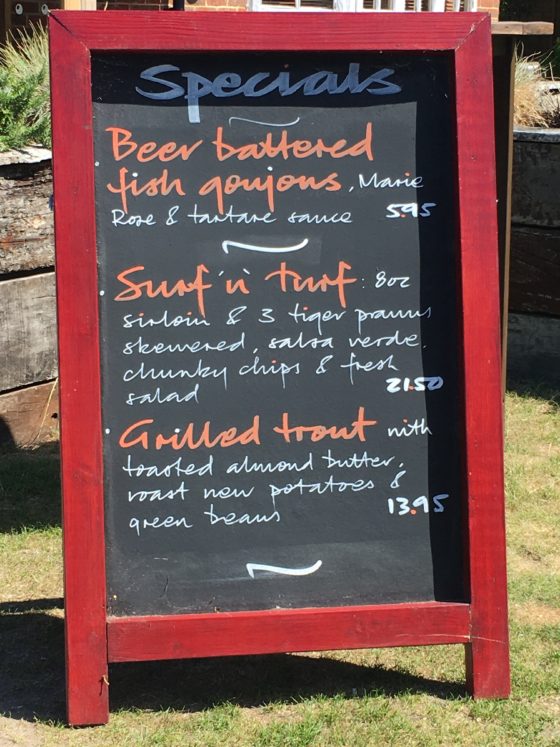 Specials
Beer battered
fish goujons, Marie
Rose & tartare sauce 5.95
Surf 'n' turf : 8oz
sirloin & 3 tiger prawns
skewered, salsa verde,
chunky chips & fresh
salad 21.50
Grilled trout with
toasted almond butter,
roast new potatoes &
green beans 13.95